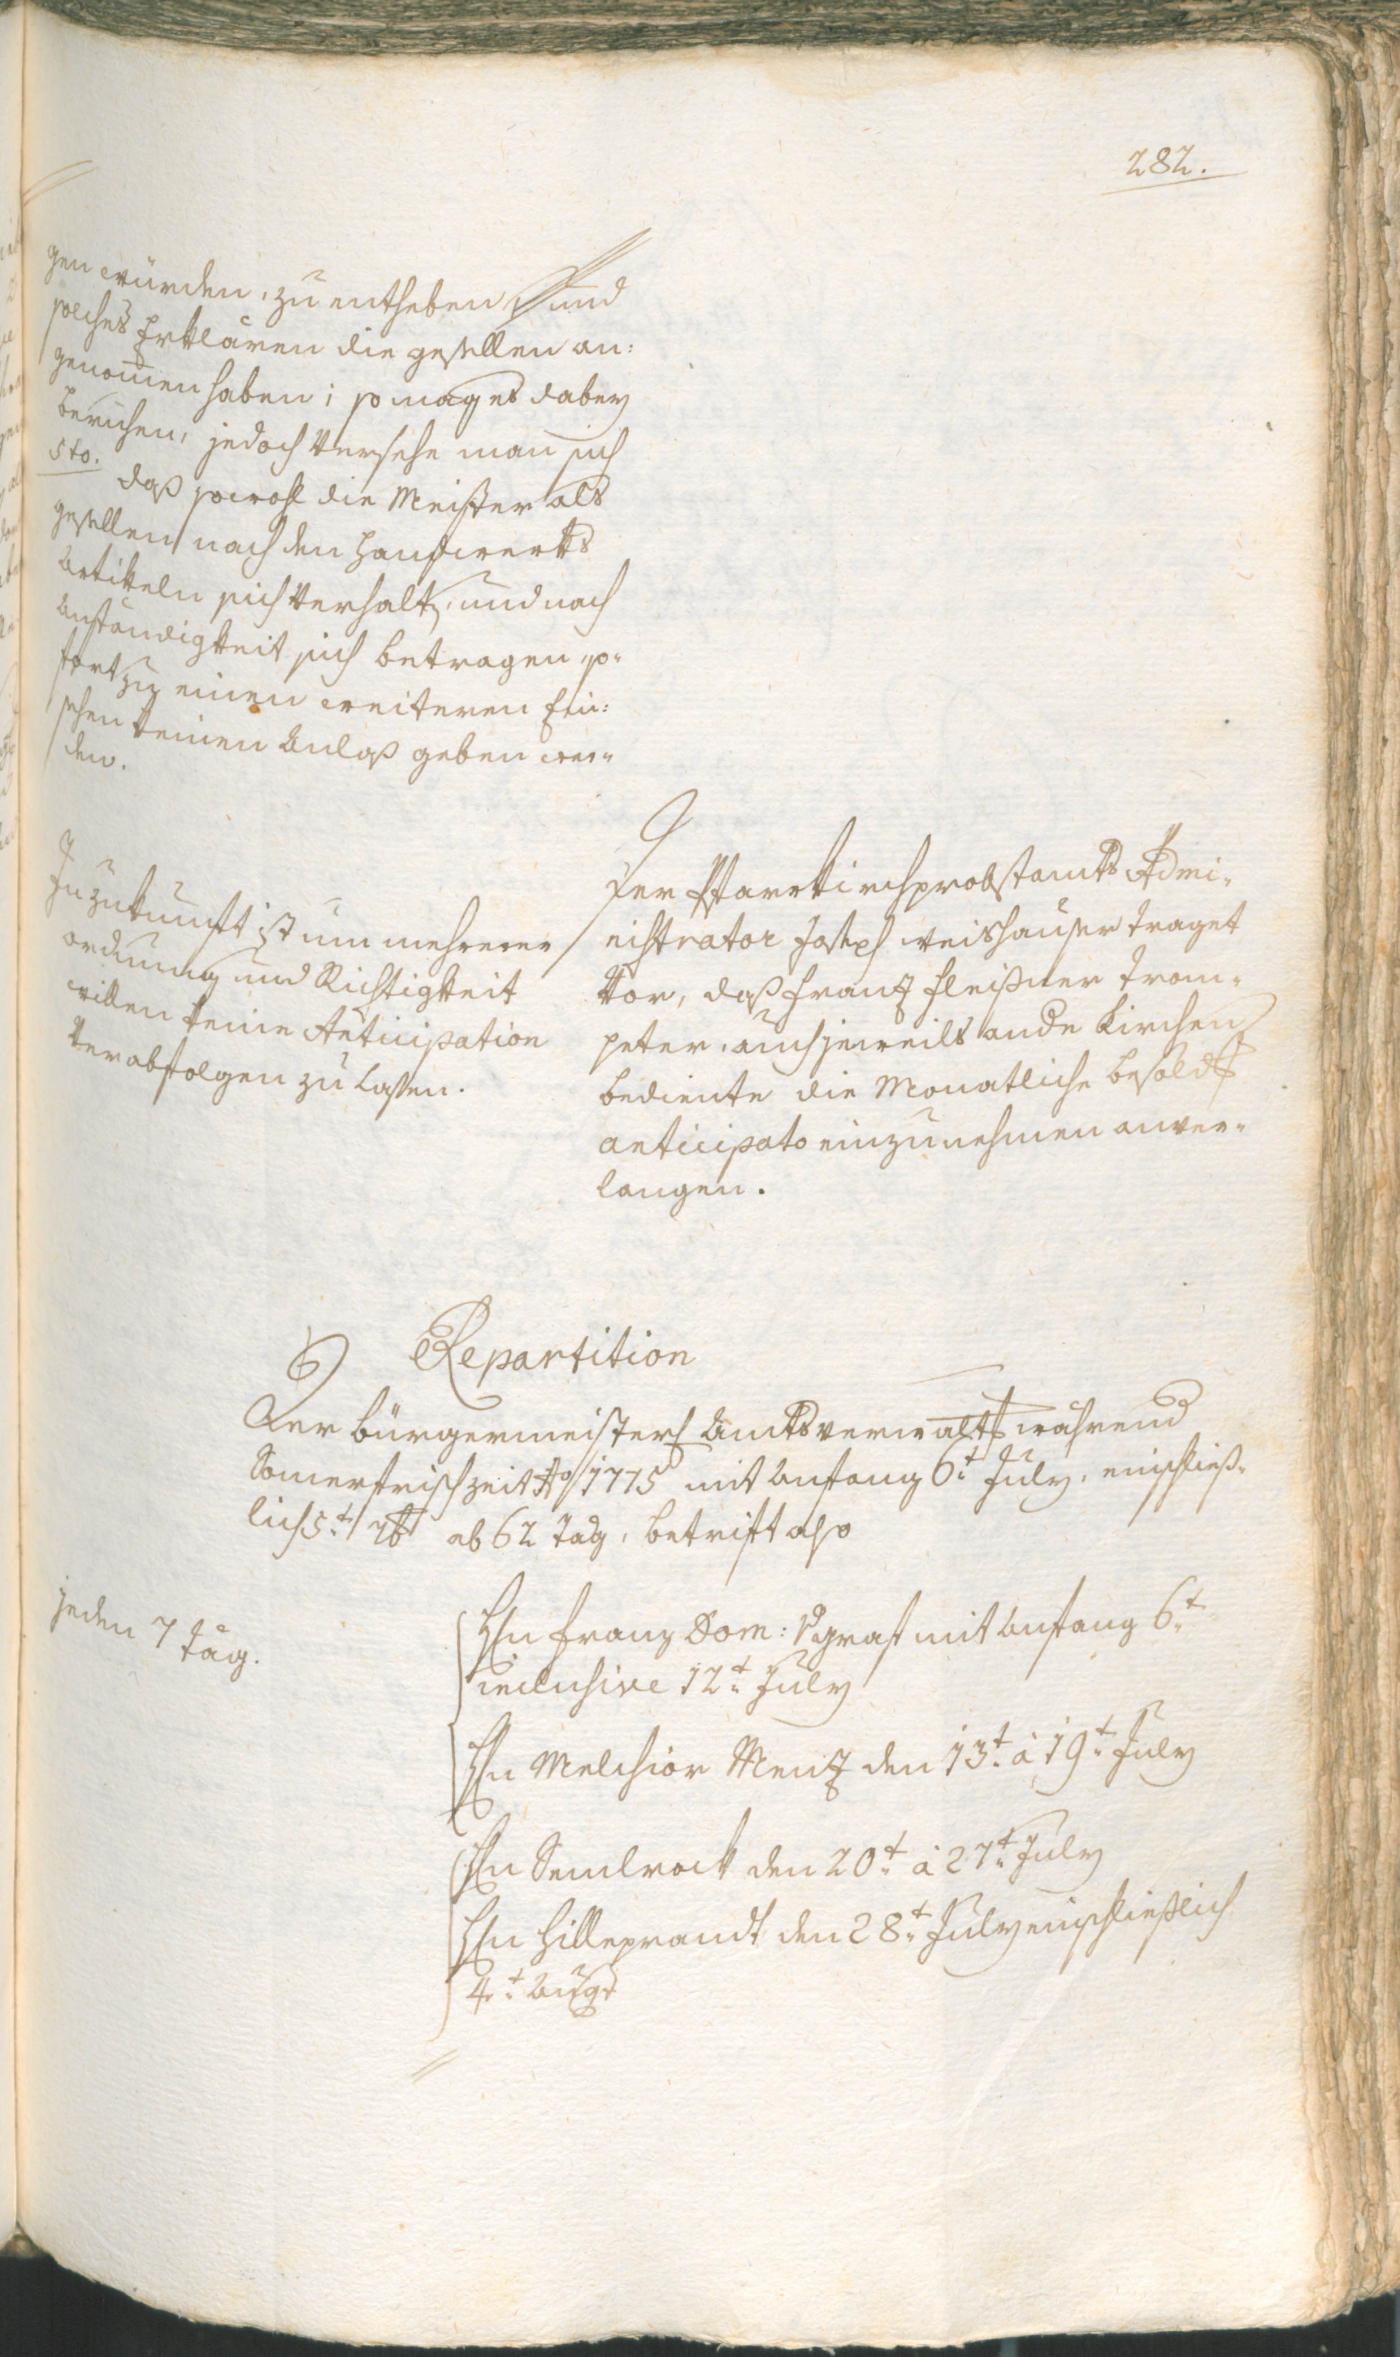 282.
gen würden, zu entheben und
solches Erklären die gesellen an:
genomen haben; so mag es dabey
beruhen, jedoch Versehe man sich
5to.
daß sowohl die Meister als
gesellen nach den Handwerks
Artikeln sich Verhalten, und nach
Anständigkeit sich betragen, so-
fort zu einen weiteren Ein:
sehen keinen Anlaß geben wer-
den.
In Zukunft ist um mehrerer
ordnung und Richtigkeit
willen keine Anticipation
Verabfolgen zu Lassen.
Der Pfarrkirchprobstamts Admi-
nistrator Joseph Weishauser traget
Vor, daß Franz Fleißner Trom-
peter, auch jeweils ande Kirchen
bediente die Monatliche besold
anticipato einzunehmen anver-
langen.
Repartition
Der bürgermeisterl Amtsverwalt während
Somerfrischzeit Ao 1775 mit Anfang 6t July, einschließ-
lich 5t 7b ab 62 Täg, betrift also
jeden 7 täg.
Hn Franz Dom: Vgraf mit Anfang 6t
inclusive 12t July
Hn Melchior Menz den 13t à 19t July
Hn Semlrock den 20t à 27t July
Hn Hilleprandt den 28t July einschließlich
4t Augt